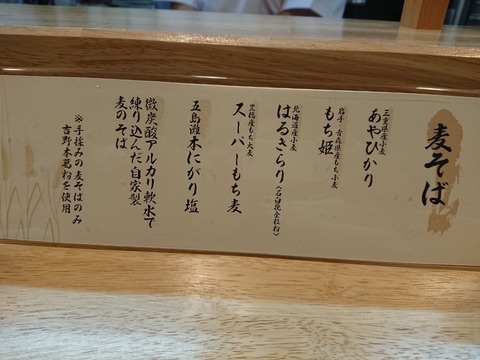 麦そば
三重県産小麦
あやひかり
岩手・青森県産もち小麦
もち姫
北海道産小麦
はるきらり(石臼挽全粒粉)
豊橋産もち大麦
スーパーもち麦
五島灘本にがり塩
微炭酸アルカリ軟水で
練り込んだ自家製
麦のそば
※手揉みの麦そばのみ
吉野本葛粉を使用